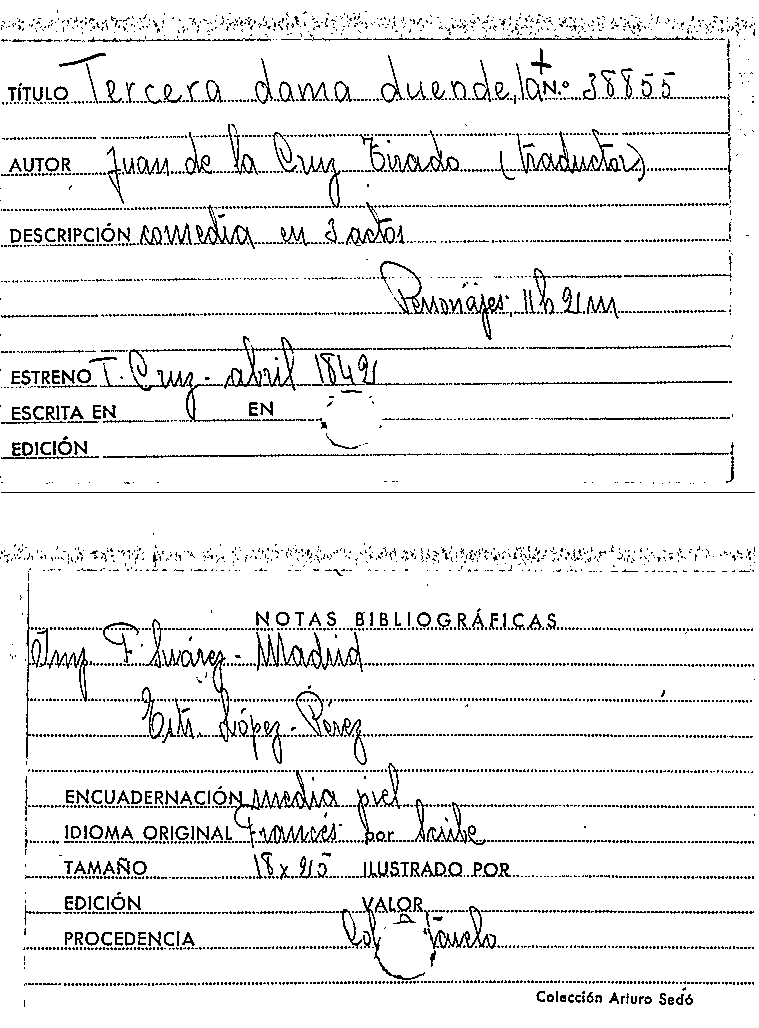 TÍTULO Tercera dama duende, la N.º 38855
AUTOR Juan de la Cruz Tirado (traductor)
DESCRIPCIÓN comedia en 3 actos
Personajes, 11 h 2 m
ESTRENO T. Cruz - abril 1842
ESCRITA EN EN
EDICIÓN
NOTAS BIBLIOGRÁFICAS
Imp F. Suárez - Madrid
Edit. López - Pérez
ENCUADERNACIÓN media piel
IDIOMA ORIGINAL Francés por Scribe
TAMAÑO 18 x 25 ILUSTRADO POR
EDICIÓN VALOR
PROCEDENCIA Col
Colección Arturo Sedó